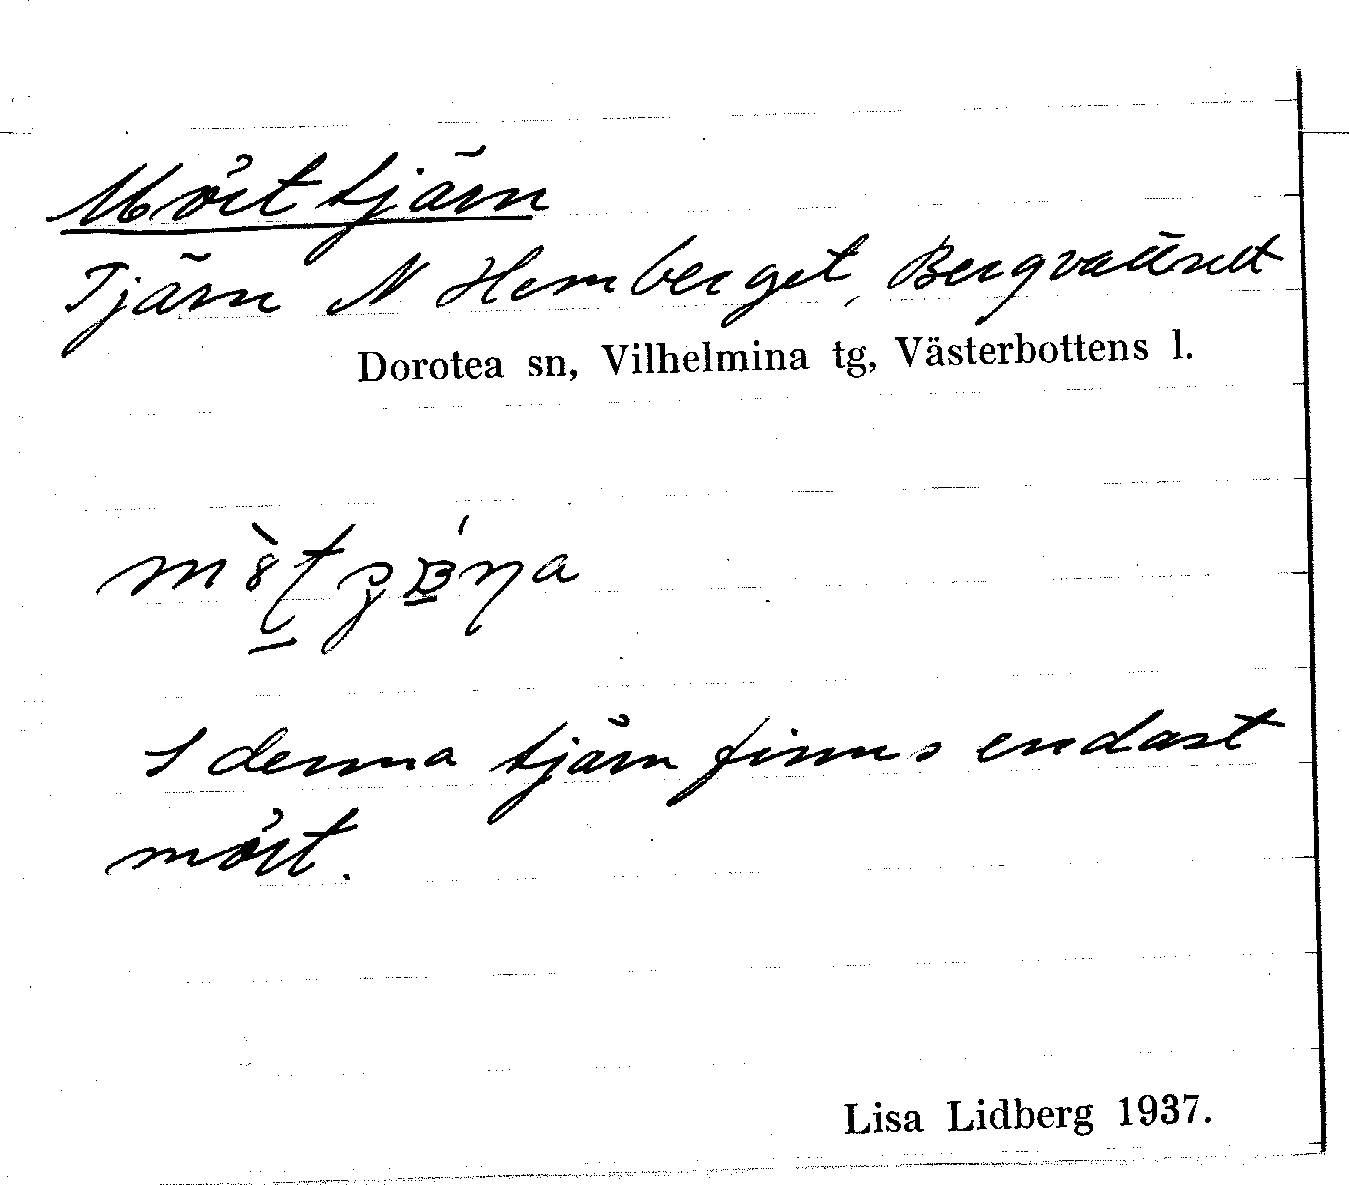 Mörttjärn
Tjärn N Hemberget, Bergvattnet
Dorotea sn, Vilhelmina tg, Västerbottens l.
I denna tjärn finns endast
mört.
Lisa Lidberg 1937.